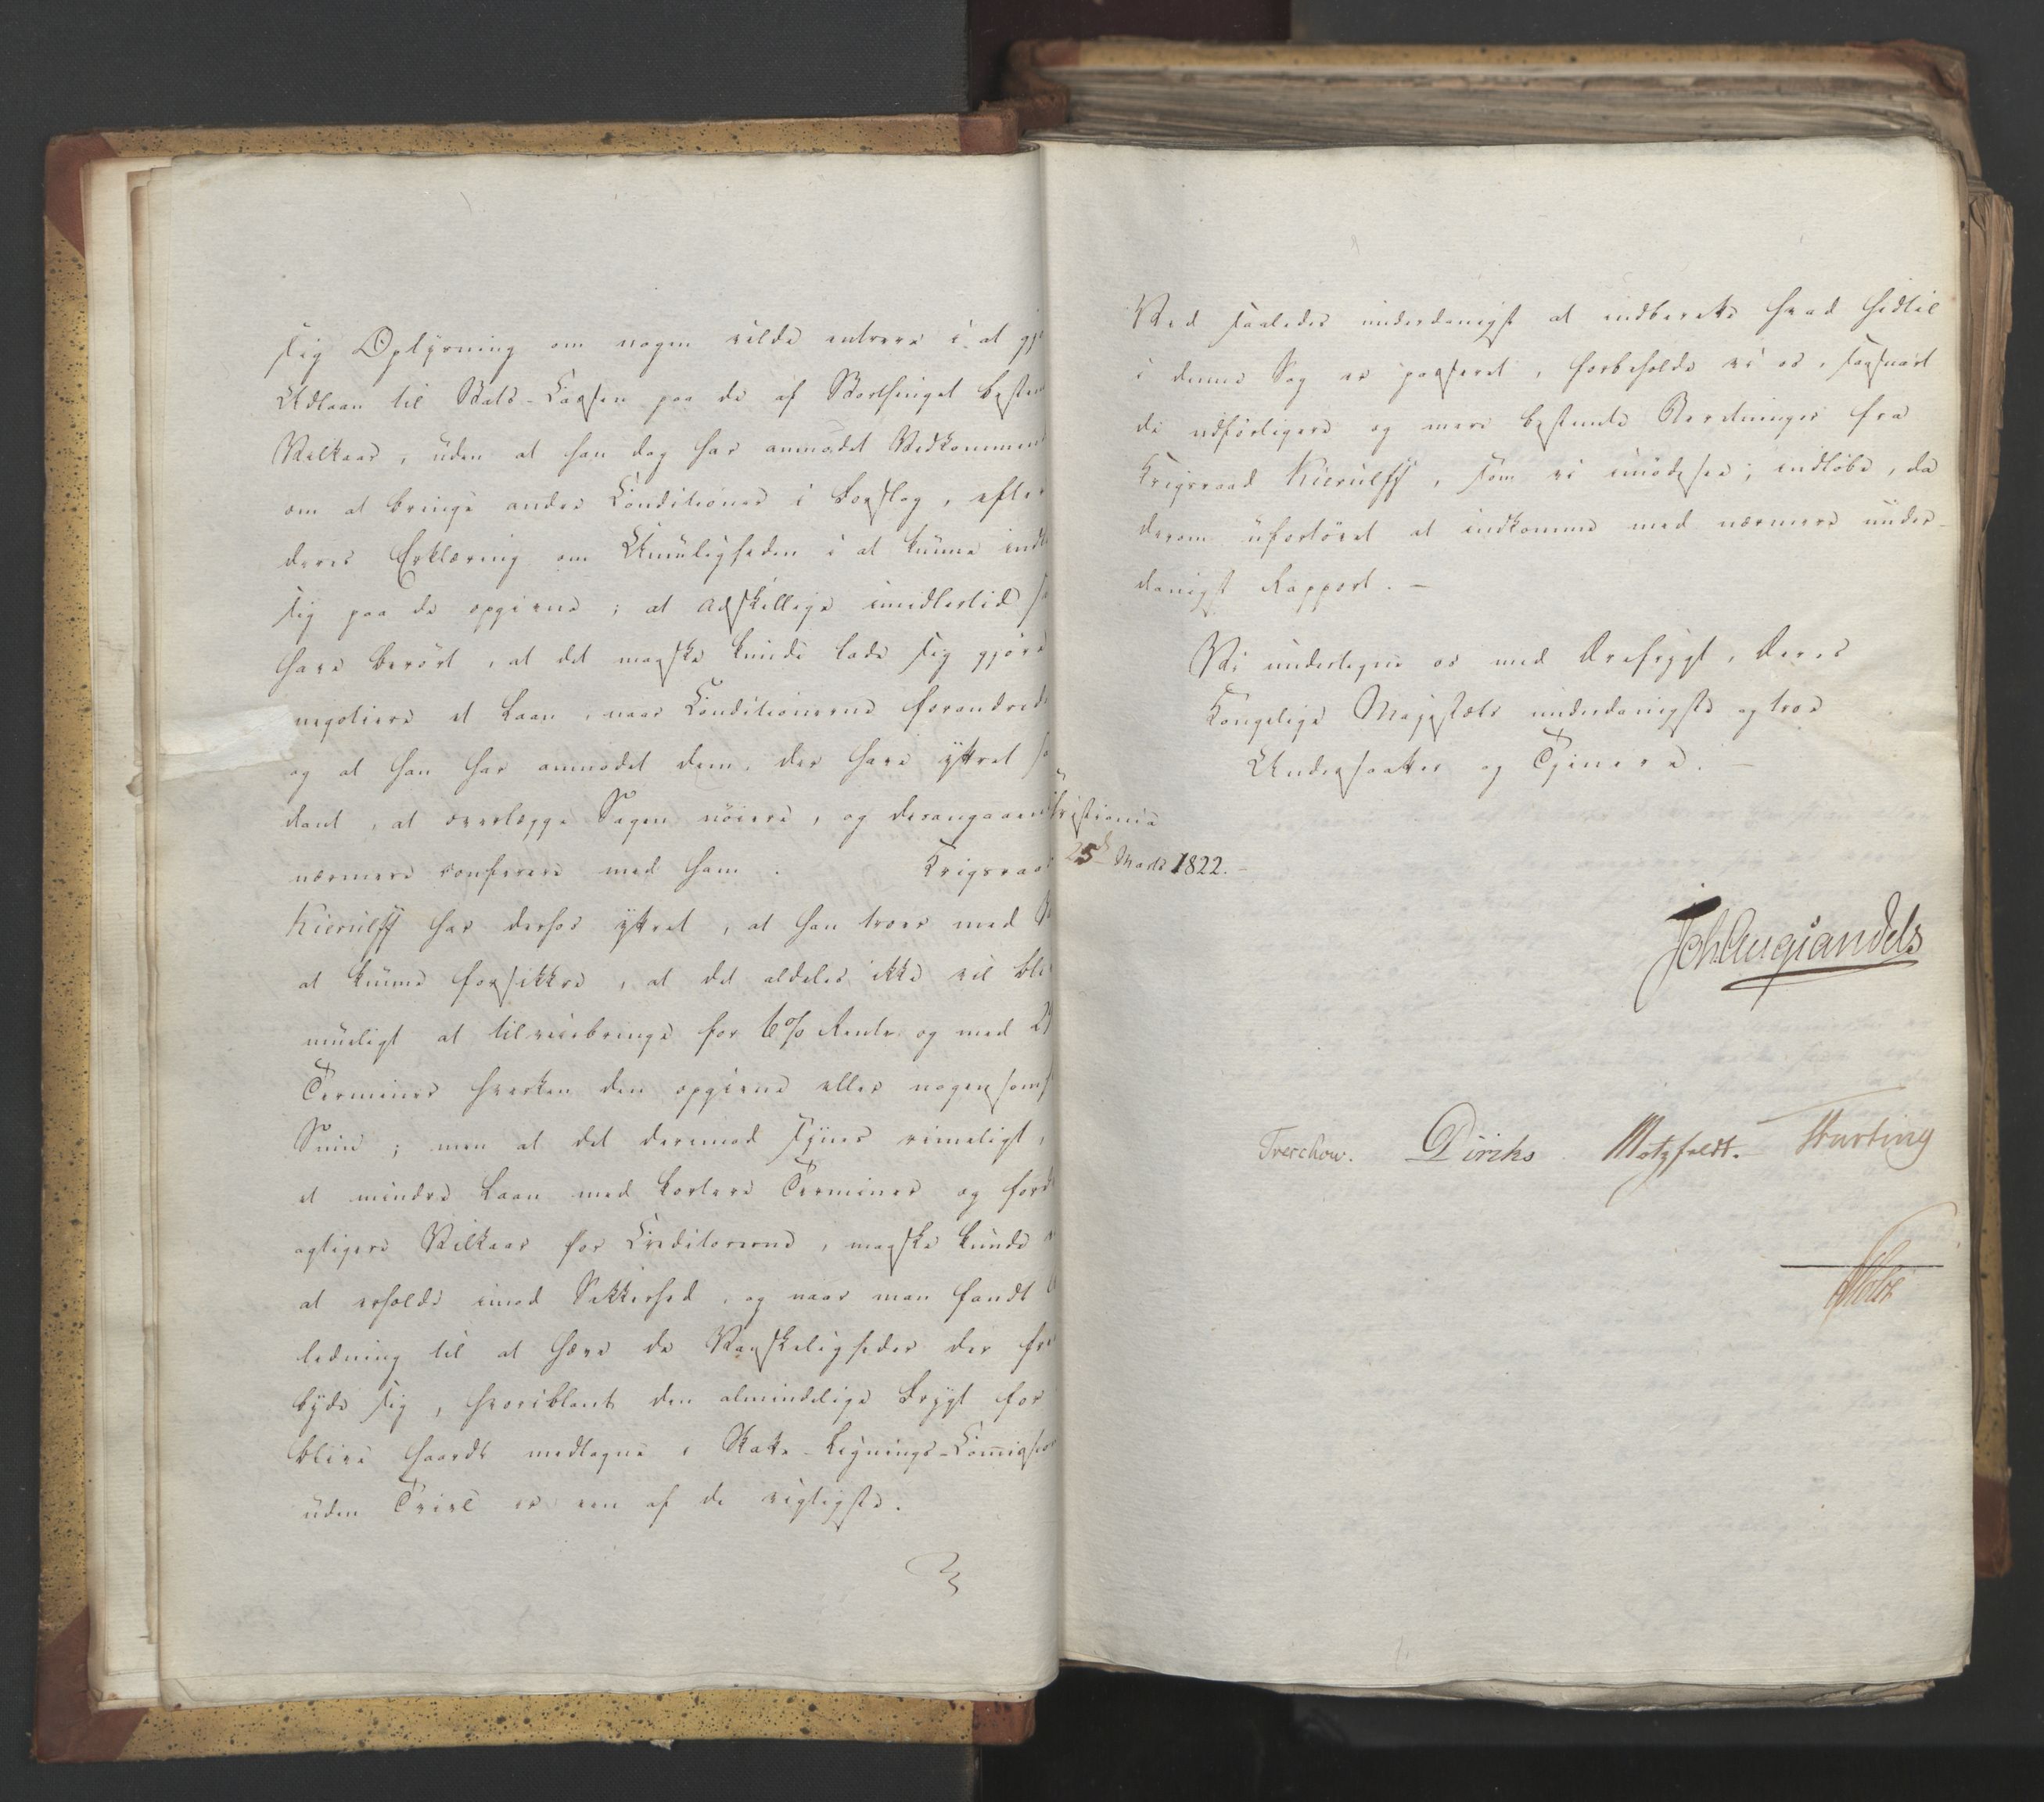 sig Oplysning om nogen vilde entrere i at gjø
Udlaan til Stats-Cassen paa de af Storthinget bestem
Vilkaar, uden at han dog har anmodet Vedkommen
om at bringe andre Conditioner i Forslag, efter
deres Erklæring om Umuligheden i at kunne indl
sig paa de opgivne; at adskillige imidlertid
have berørt, at det maaske kunde lade sig gjøre
negotiere et Laan, naar Conditionerne forandred
og at han har anmodet dem, der have yttret saa
dant, at overlægge Sagen nøiere, og desangaaende
nærmere conferere med ham. Krigsraad
Kierulff har derhos yttret, at han troer med
at kunne forsikkre, at det aldeles ikke vil bli
mueligt at tilveiebringe for 6% Rente og med
Terminer hverken den opgivne eller nogensomh
Sum; men at det derimod synes rimeligt,
et mindre Laan med kortere Terminer og ford
agtigere Vilkaar for Creditorerne, maaske kunde
at erholde imod Sikkerhed, og naar man fandt
ledning til at hæve de Vanskeligheder der fre
byde sig, hvoriblant den almindelige Frygt for
blive haardt medtagne i Skatte-Lignings-Commission
uden Tvivl er een af de vigtigste.
Ved saaledes underdanigst at indberette hvad hidtil
i denne Sag er passeret, forbeholde vi os, saasnart
de udførligere og mere bestemte Beretninger fra
Krigsraad Kierulff, som vi imødesee, indløbe, da
derom ufortøvet at indkomme med nærmere under-
danigst Rapport. —
Vi undertegne os med Ærefrygt, Deres
Kongelige Majestæts underdanigste og troe
Undersaatter og Tjenere. —
Christiania
25d Marts 1822. —
Joh Aug Sandels
Treschow. Diriks Motzfeldt. Hurting
Holst